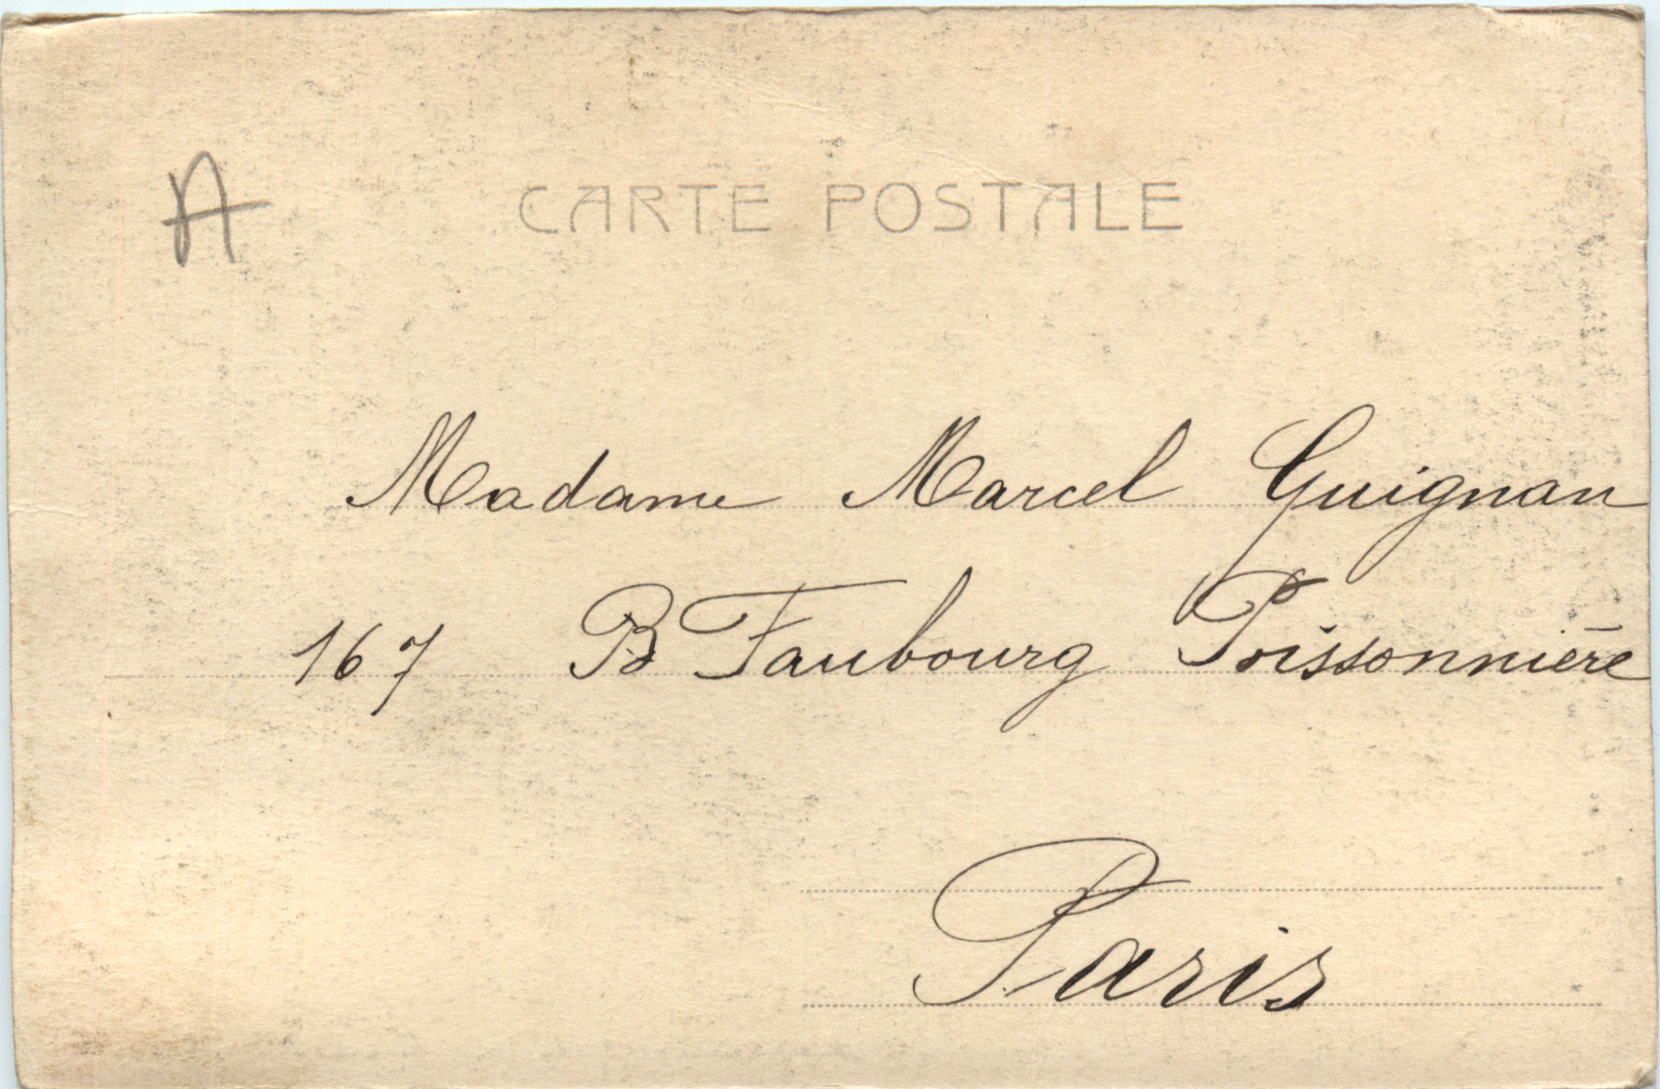 A
CARTE POSTALE
Madame Marcel Guignan
167 B Faubourg Poissonnière
Paris